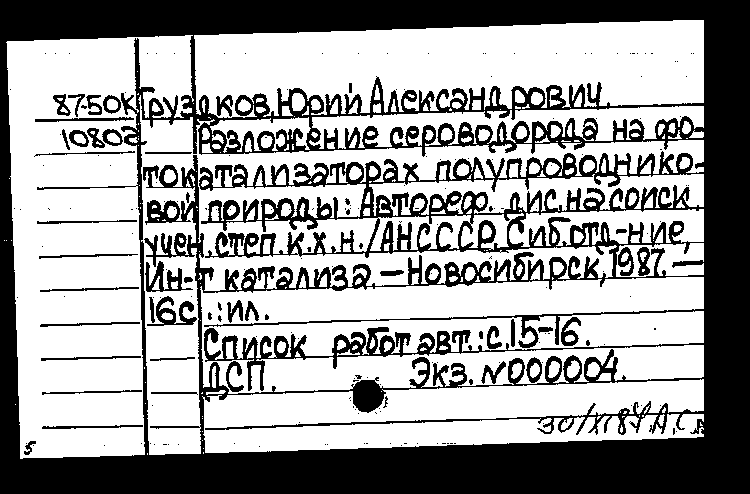 87-50К Груздков, Юрий Александрович.
10802 Разложение сероводорода на фо-
токатализаторах полупроводнико-
вой природы: Автореф. дис. на соиск.
учен. степ. к.х.н. /АН СССР. Сиб. отд-ние,
Ин-т катализа. — Новосибирск, 1987. —
16с.: ил.
Список работ авт.: с. 15-16.
ДСП. Экз. N000004.
5